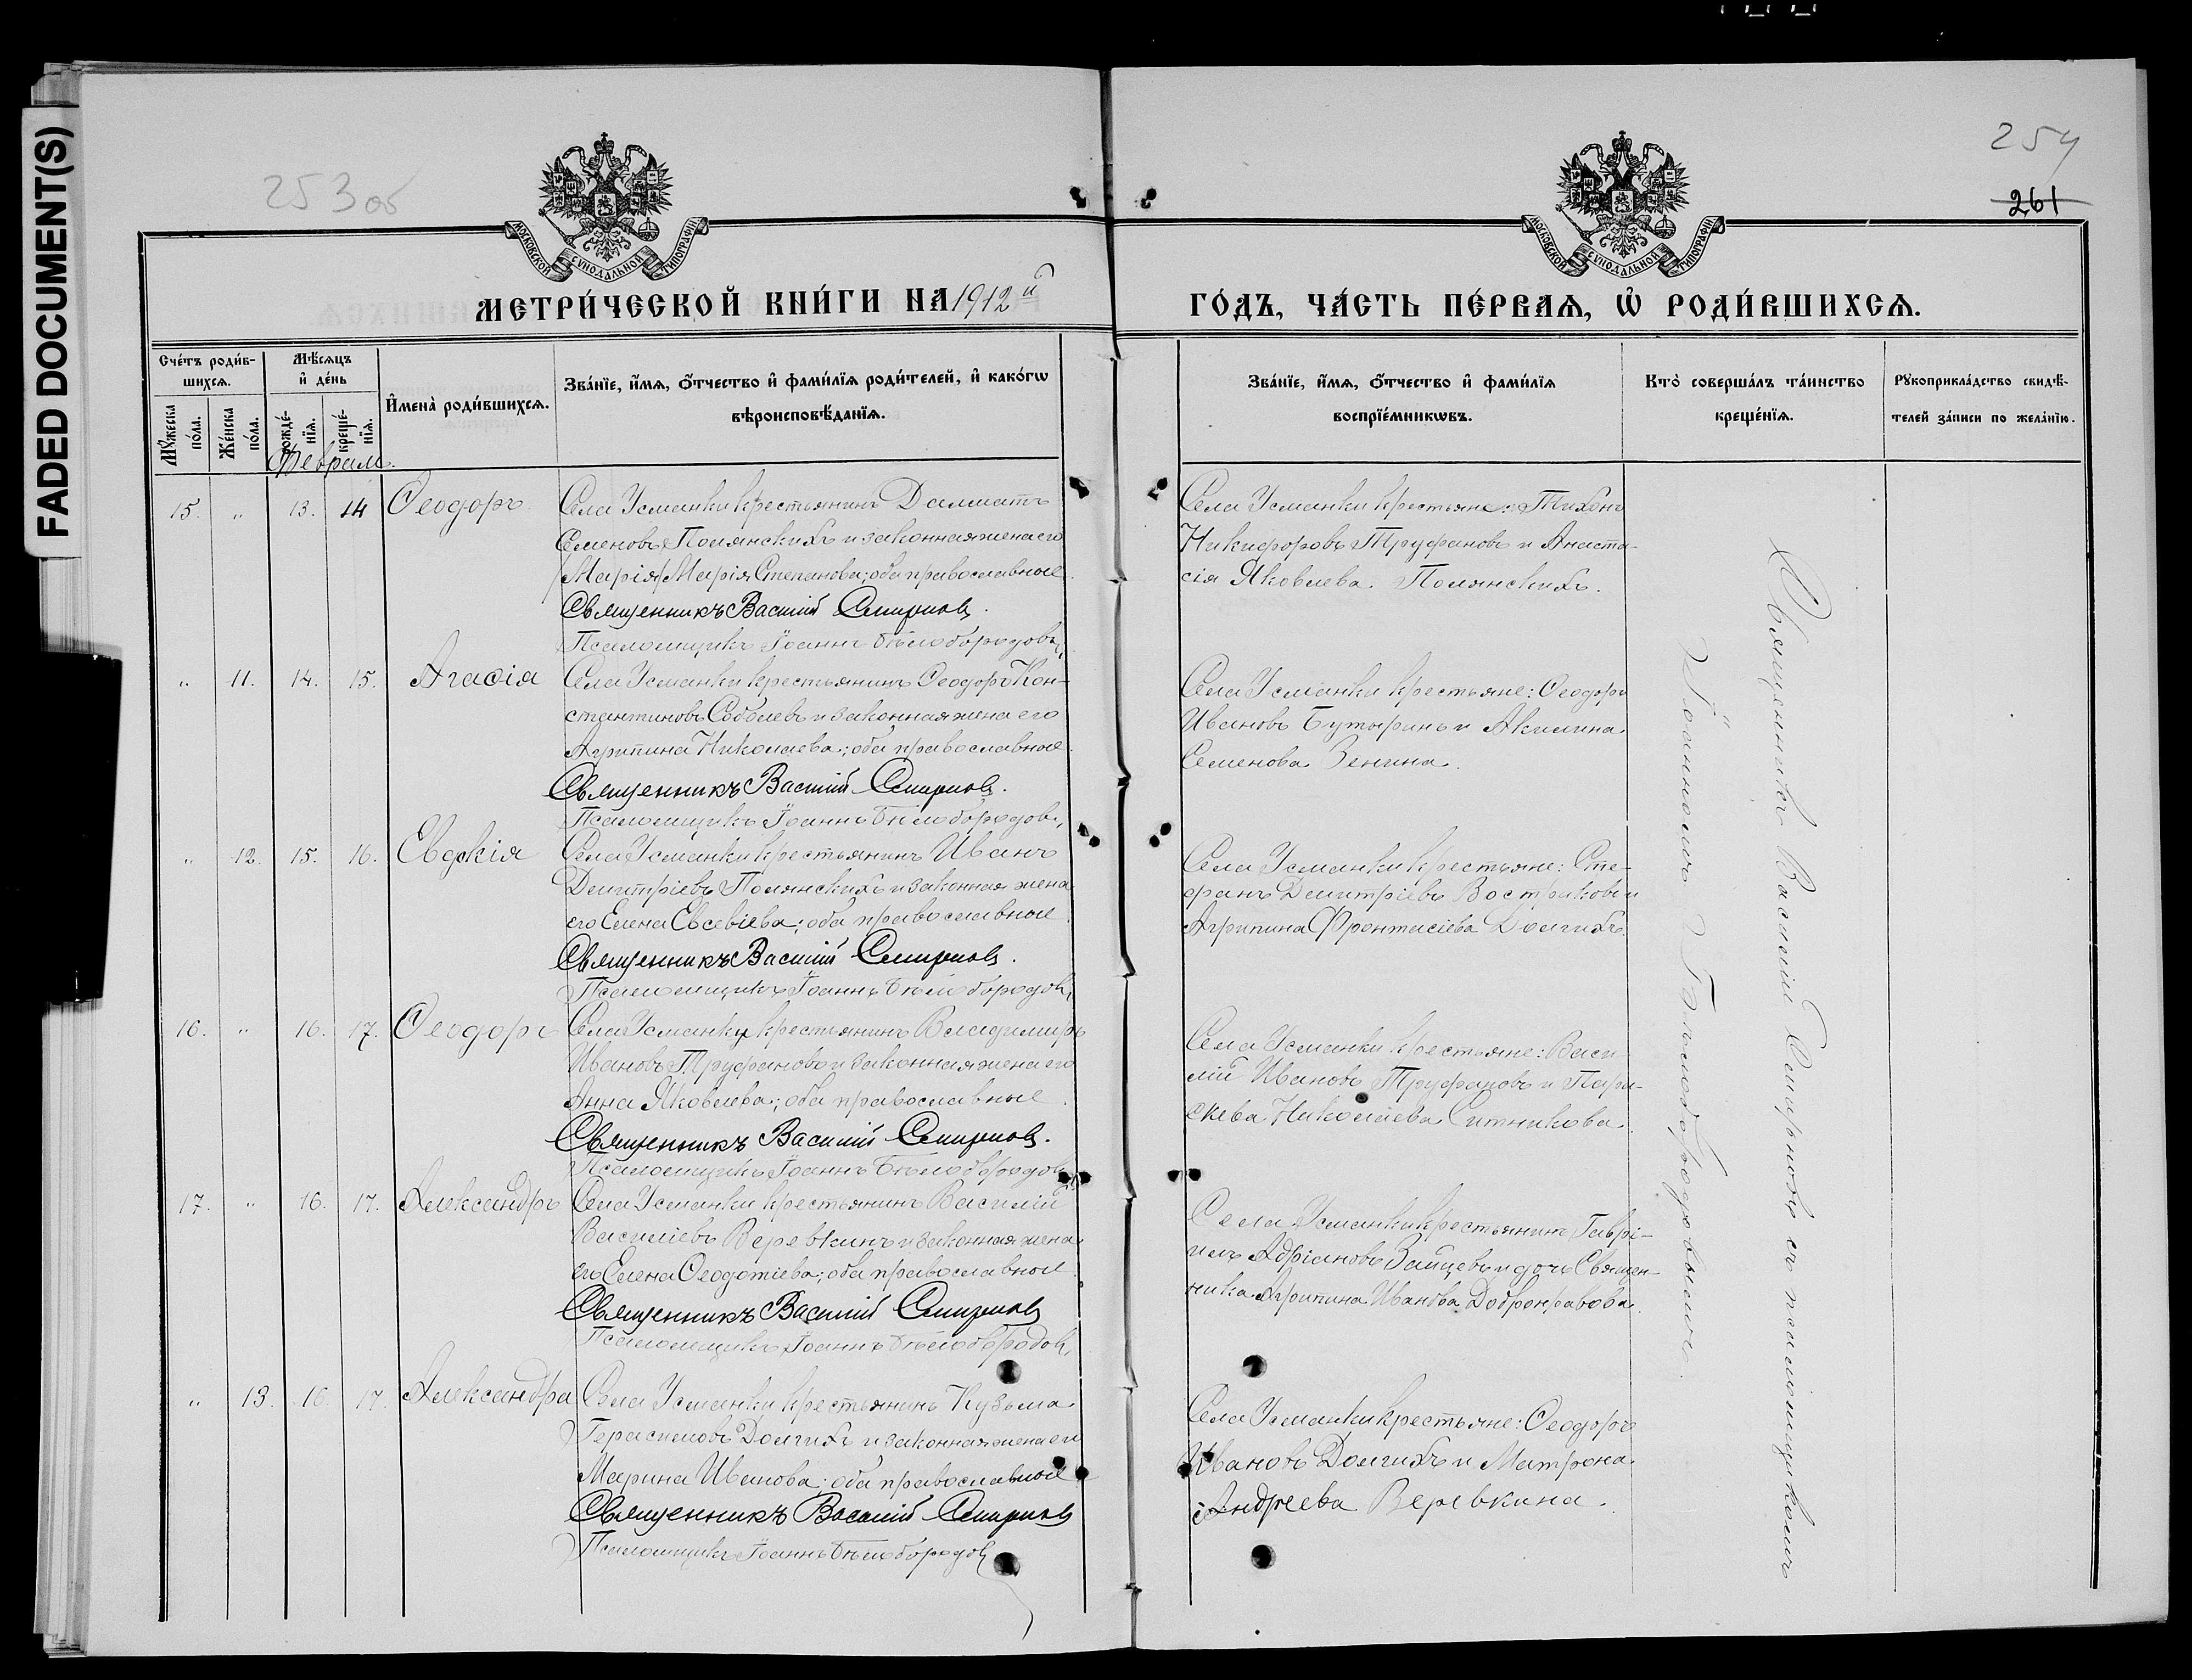 FADED DOCUMENT(S)
253 об
254
261
МОСКОВСКОЙ СѴНОДАЛЬНОЙ ТИПОГРАФІИ
МОСКОВСКОЙ СѴНОДАЛЬНОЙ ТИПОГРАФІИ
МЕТРИ́ЧЕСКОЙ КНИ́ГИ НА 1912 й
ГО́ДЪ, ЧА́СТЬ ПЕ́РВАѦ, Ѡ҆ РОДИ́ВШИХСѦ.
Сче́тъ роди́в-
шихсѧ.
Мꙋ́жеска по́ла.
Же́нска по́ла.
Мѣ́сѧцъ
и҆ де́нь
рожде́-
нїѧ.
креще́-
нїѧ.
И҆мена̀ роди́вшихсѧ.
Зва́нїе, и҆́мѧ, ѻ҆́тчество и҆ фами́лїѧ роди́телей, и҆ како́гѡ
вѣроисповѣ́данїѧ.
Зва́нїе, и҆́мѧ, ѻ҆́тчество и҆ фами́лїѧ
воспрїе́мникѡвъ.
Кто̀ соверша́лъ та́инство
креще́нїѧ.
Рꙋкоприкла́дство свидѣ́-
телей за́писи по жела́нїю.
Февраля.
15. „ 13. 14 Ѳеодоръ
Села Усманки крестьянинъ Далматъ
Семеновъ Полянскихъ и законная жена его
/Марія/ Марія Степанова; оба православные.
Священникъ Василій Смирновъ.
Псаломщикъ Іоаннъ Бѣлобородовъ,
Села Усманки крестьяне: Тихонъ
Никифоровъ Труфановъ и Анаста-
сія Яковлева Полянскихъ.
„ 11. 14. 15. Агаѳія
Села Усманки крестьянинъ Ѳеодоръ Кон-
стантиновъ Соболевъ и законная жена его
Агрипина Николаева; оба православные.
Священникъ Василій Смирновъ.
Псаломщикъ Іоаннъ Бѣлобородовъ,
Села Усманки крестьяне: Ѳеодоръ
Ивановъ Бутыринъ и Акилина
Семенова Зенина.
„ 12. 15. 16. Евдокія
Села Усманки крестьянинъ Иванъ
Димитріевъ Полянскихъ и законная жена
его Елена Евсевіева; оба православные.
Священникъ Василій Смирновъ.
Псаломщикъ Іоаннъ Бѣлобородовъ,
Села Усманки крестьяне: Сте-
фанъ Димитріевъ Востриковъ и
Агрипина Фронтисіева Долгихъ.
16. „ 16. 17. Ѳеодоръ
Села Усманки крестьянинъ Владимиръ
Ивановъ Труфановъ и законная жена его
Анна Яковлева; оба православные.
Священникъ Василій Смирновъ.
Псаломщикъ Іоаннъ Бѣлобородовъ,
Села Усманки крестьяне: Васи-
лій Ивановъ Труфановъ и Пара-
скева Николаева Ситникова.
17. „ 16. 17. Александръ
Села Усманки крестьянинъ Василій
Василіевъ Веревкинъ и законная жена
его Елена Ѳеодотіева; оба православные.
Священникъ Василій Смирновъ
Псаломщикъ Іоаннъ Бѣлобородовъ,
Села Усманки крестьянинъ Гаврі-
илъ Адріановъ Зайцевъ и дочь Священ-
ника Агрипина Иванова Добронравова.
„ 13. 16. 17. Александра
Села Усманки крестьянинъ Кузьма
Герасимовъ Долгихъ и законная жена его
Марина Иванова; оба православные
Священникъ Василій Смирновъ
Псаломщикъ Іоаннъ Бѣлобородовъ
Села Усманки крестьяне: Ѳеодоръ
Ивановъ Долгихъ и Матрона
Андреева Веревкина.
Священникъ Василій Смирновъ съ псаломщикомъ
Іоанномъ Бѣлобородовымъ.